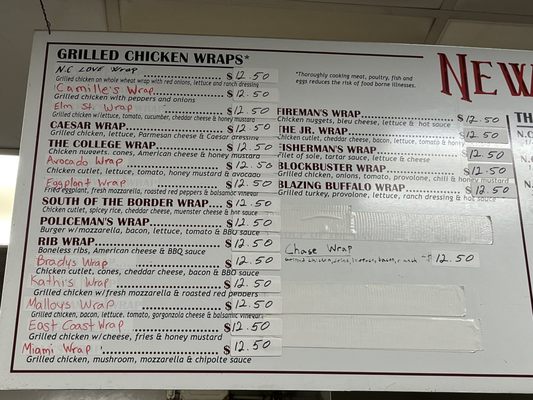 GRILLED CHICKEN WRAPS*
N.E LOVE Wrap $12.50
Grilled chicken on whole wheat wrap with red onions, lettuce and ranch dressing
Camille's Wrap $12.50
Grilled chicken with peppers and onions
Elm St. Wrap $12.50
Grilled chicken w/lettuce, tomato, cucumber, cheddar cheese & honey mustard
CAESAR WRAP $12.50
Grilled chicken, lettuce, Parmesan cheese & Caesar dressing
THE COLLEGE WRAP $12.50
Chicken nuggets, cones, American cheese & honey mustard
Avocado Wrap $12.50
Chicken cutlet, lettuce, tomato, honey mustard & avocado
Eggplant Wrap $12.50
Fried eggplant, fresh mozzarella, roasted red peppers & balsamic vinegar
SOUTH OF THE BORDER WRAP $12.50
Chicken cutlet, spicey rice, cheddar cheese, muenster cheese & hot sauce
POLICEMAN'S WRAP $12.50
Burger w/mozzarella, bacon, lettuce, tomato & BBQ sauce
RIB WRAP $12.50
Boneless ribs, American cheese & BBQ sauce
Bradys Wrap $12.50
Chicken cutlet, cones, cheddar cheese, bacon & BBQ sauce
Kathi's Wrap $12.50
Grilled chicken w/fresh mozzarella & roasted red peppers
Malloys Wrap $12.50
Grilled chicken, bacon, lettuce, tomato, gorgonzola cheese & balsamic vinegar
East Coast Wrap $12.50
Grilled chicken w/cheese, fries & honey mustard
Miami Wrap $12.50
Grilled chicken, mushroom, mozzarella & chipolte sauce
*Thoroughly cooking meat, poultry, fish and
eggs reduces the risk of food borne illnesses.
FIREMAN'S WRAP $12.50
Chicken nuggets, bleu cheese, lettuce & hot sauce
THE JR. WRAP $12.50
Chicken cutlet, cheddar cheese, bacon, lettuce, tomato & honey
FISHERMAN'S WRAP $12.50
Filet of sole, tartar sauce, lettuce & cheese
BLOCKBUSTER WRAP $12.50
Grilled chicken, onions, tomato, provolone, chili & honey mustard
BLAZING BUFFALO WRAP $12.50
Grilled turkey, provolone, lettuce, ranch dressing & hot sauce
Chase Wrap
12.50
NEW
TH
N.